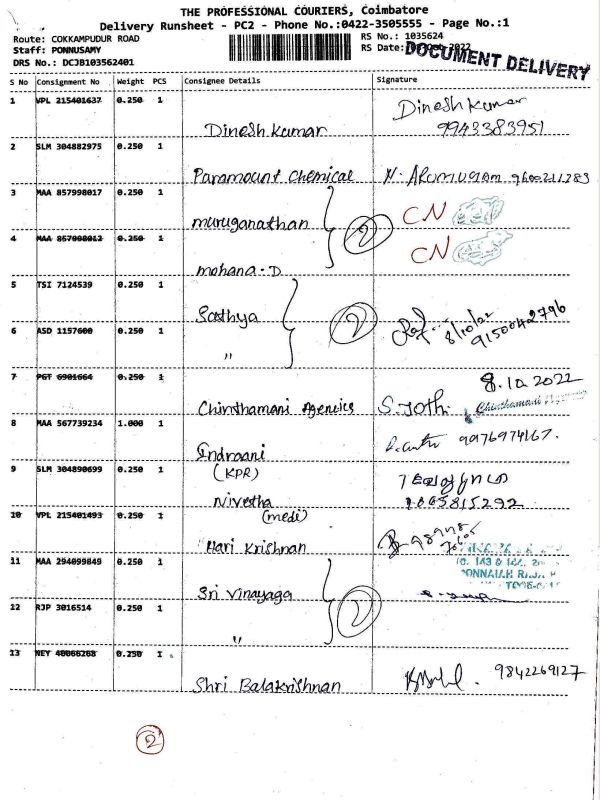 THE PROFESSIONAL COURIERS, Coimbatore
Delivery Runsheet - PC2 - Phone No.:0422-3505555 - Page No.:1
Route: COKKAMPUDUR ROAD
RS No.: 1035624
Staff: PONNUSAMY
RS Date:
DRS No.: DCJB103562401
DOCUMENT DELIVERY
S No Consignment No Weight PCS Consignee Details Signature
1 VPL 215401637 0.250 1
Dinesh Kumar
Dinesh Kumar
9943383951
2 SLM 304882975 0.250 1
Paramount Chemical
N. ARUMUGAM 9600211283
3 MAA 857998017 0.250 1
muruganathan
CN
4 MAA 857998012 0.250 1
mohana. D
CN
2
5 TSI 7124539 0.250 1
Sathya
6 ASD 1157600 0.250 1
"
2
8/10/22
9150042796
7 PGT 6901664 0.250 1
Chinthamani Agencies
8.10.2022
S. Jothi
Chinthamani
8 MAA 567739234 1.000 1
Indraani
(KPR)
9976974167.
9 SLM 304890699 0.250 1
Nivestha
(medi)
10 VPL 215401493 0.250 1
Hari Krishnan
98948
11 MAA 294099849 0.250 1
Sri Vinayaga
12 RJP 3016514 0.250 1
"
2
13 NEY 40066268 0.250 1
Shri Balakrishnan
9842269127
2